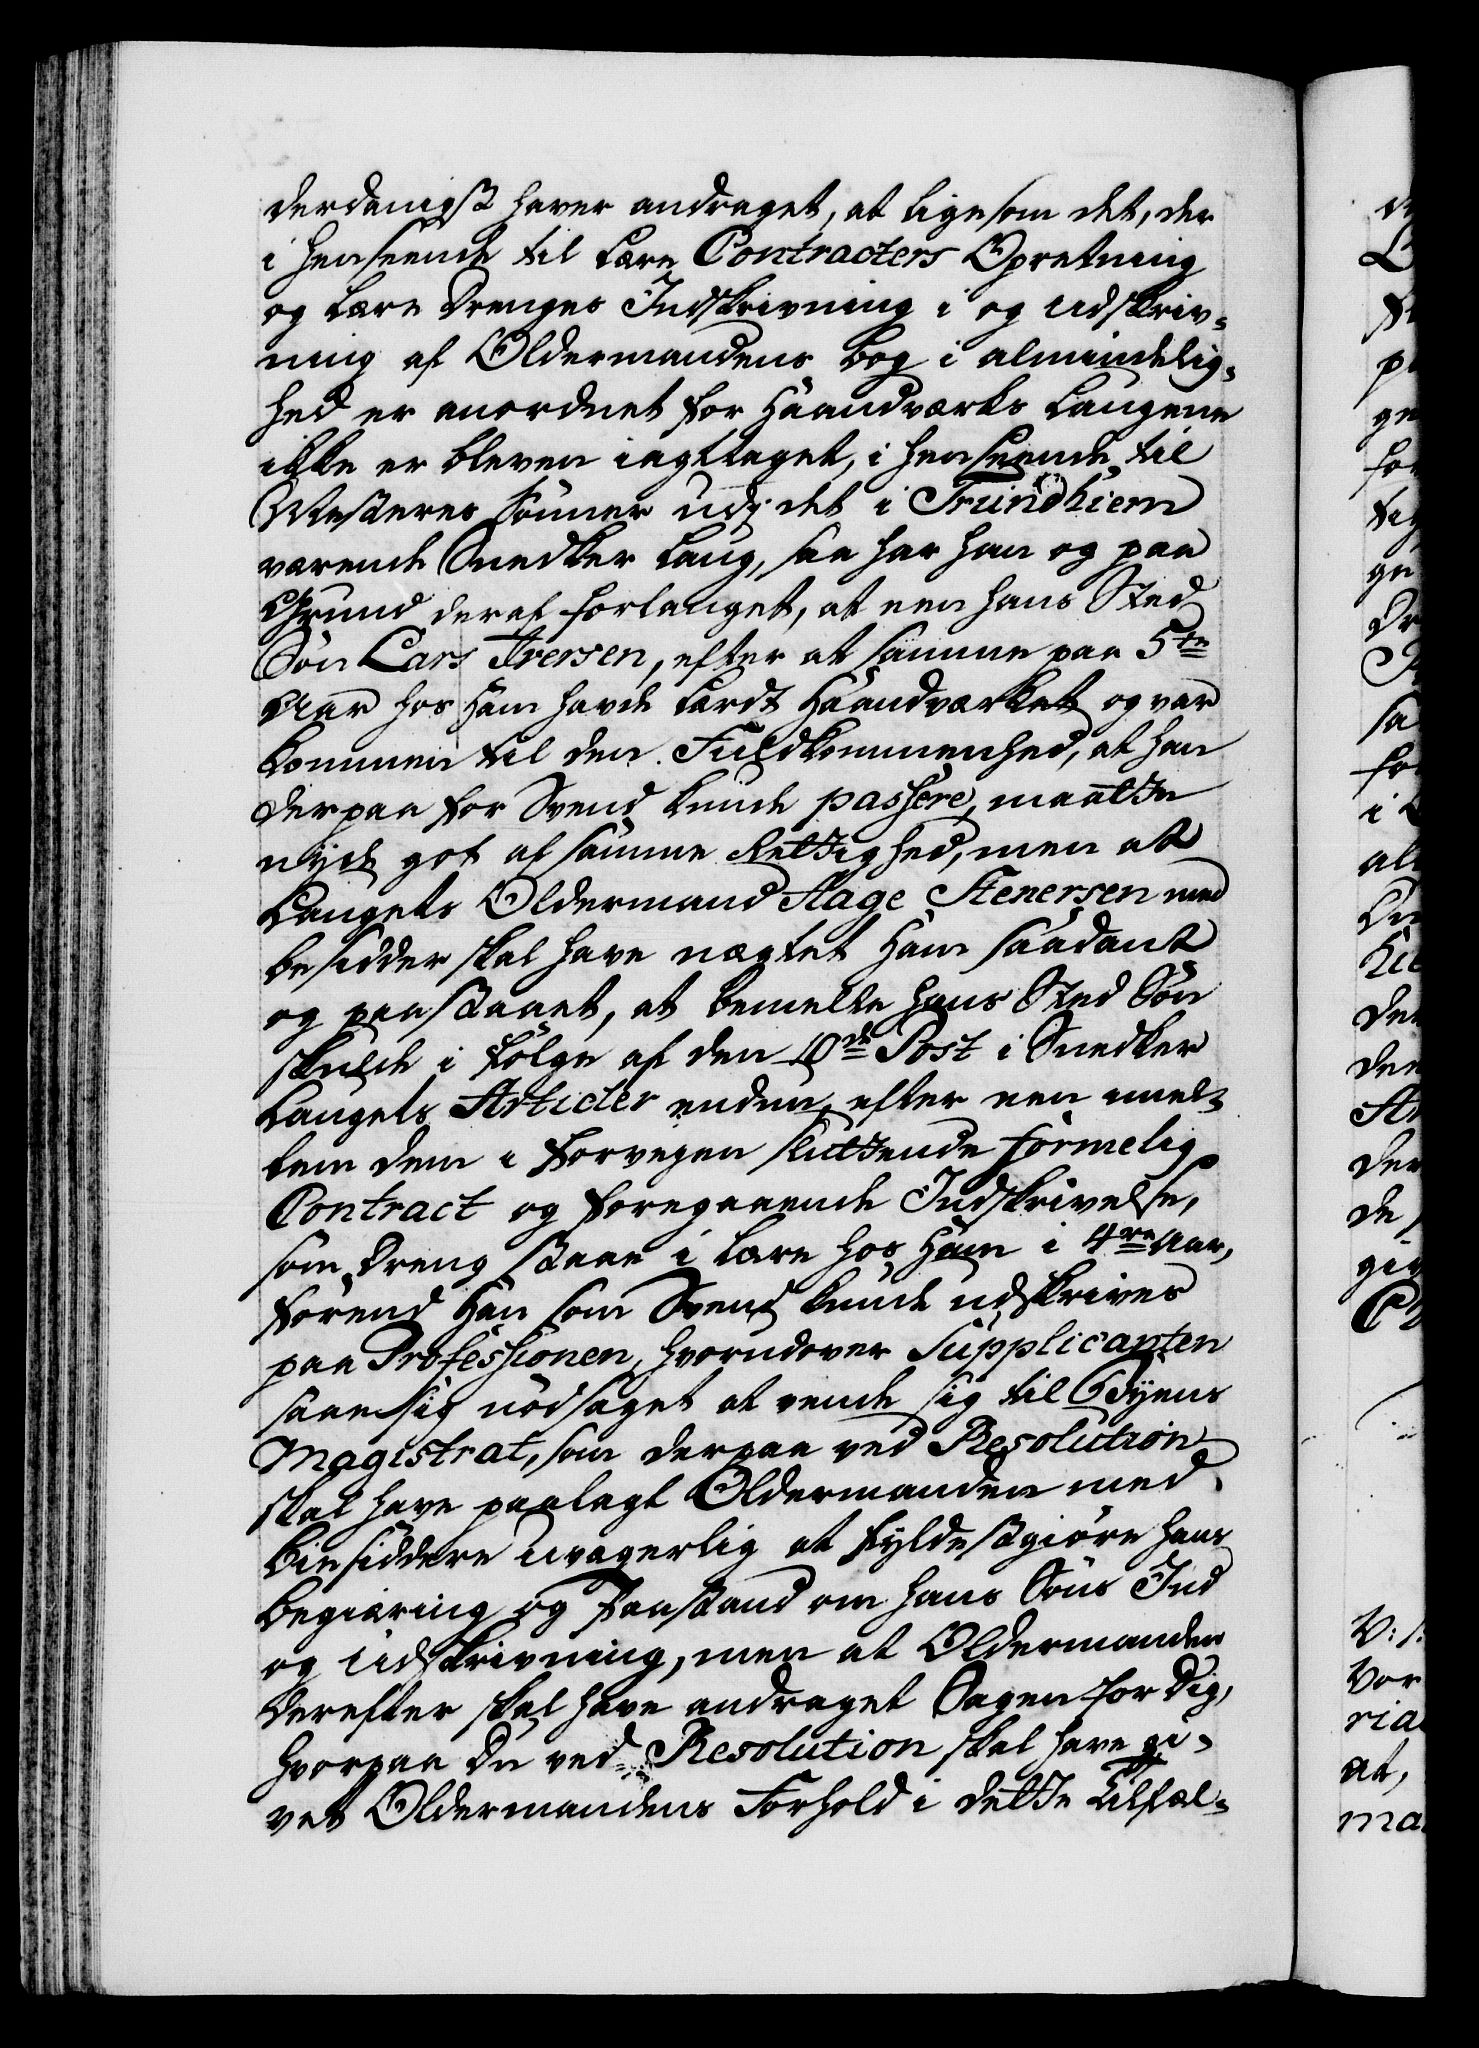 derdanigst haver andraget, at ligesom det, der
i Henseende til Lære Contracters Opretning
og Lære Drenges Indskrivning i og Udskriv-
ning af Oldermandens Bog i Almindelig-
hed er anordnet for Haandværks Laugene
ikke er bleven iagttaget, i Henseende til
Mesteres Sønner udj det i Trundhiem
værende Snedker Laug, saa har han og paa
Grund deraf forlanget, at een hans Sted
Søn Lars Iversen, efter at samme paa 5te
Aar hos Ham havde lærdt Haandværket og var
kommen til den Fuldkommenhed, at han
derpaa for Svend kunde passere, maatte
nyde got af samme Rettighed, men at
Laugets Oldermand Aage Stenersen med
besidder skal have nægtet Ham saadant
og paastaaet, at bemelte hans Sted Søn
skulde i Følge af den 10de Post i Snedker
Laugets Articler endnu, efter een imel-
lem dem i Forvejen sluttende formelig
Contract og foregaaende Indskrivelse,
som Dreng staae i Lære hos Ham i 4re Aar,
førend Han som Svend kunde udskrives
paa Professionen, hvorudover Supplicanten
saae sig nødsaget at vende sig til Byens
Magistrat, som derpaa ved Resolution
skal have paalagt Oldermanden med
Biesiddere uvægerlig at fyldestgiøre hans
Begiæring og Paastand om hans Søns Ind
og Udskrivning, men at Oldermanden
derefter skal have andraget Sagen for Dig,
hvorpaa Du ved Resolution skal have gi-
vet Oldermandens Forhold i dette Tilfæl-